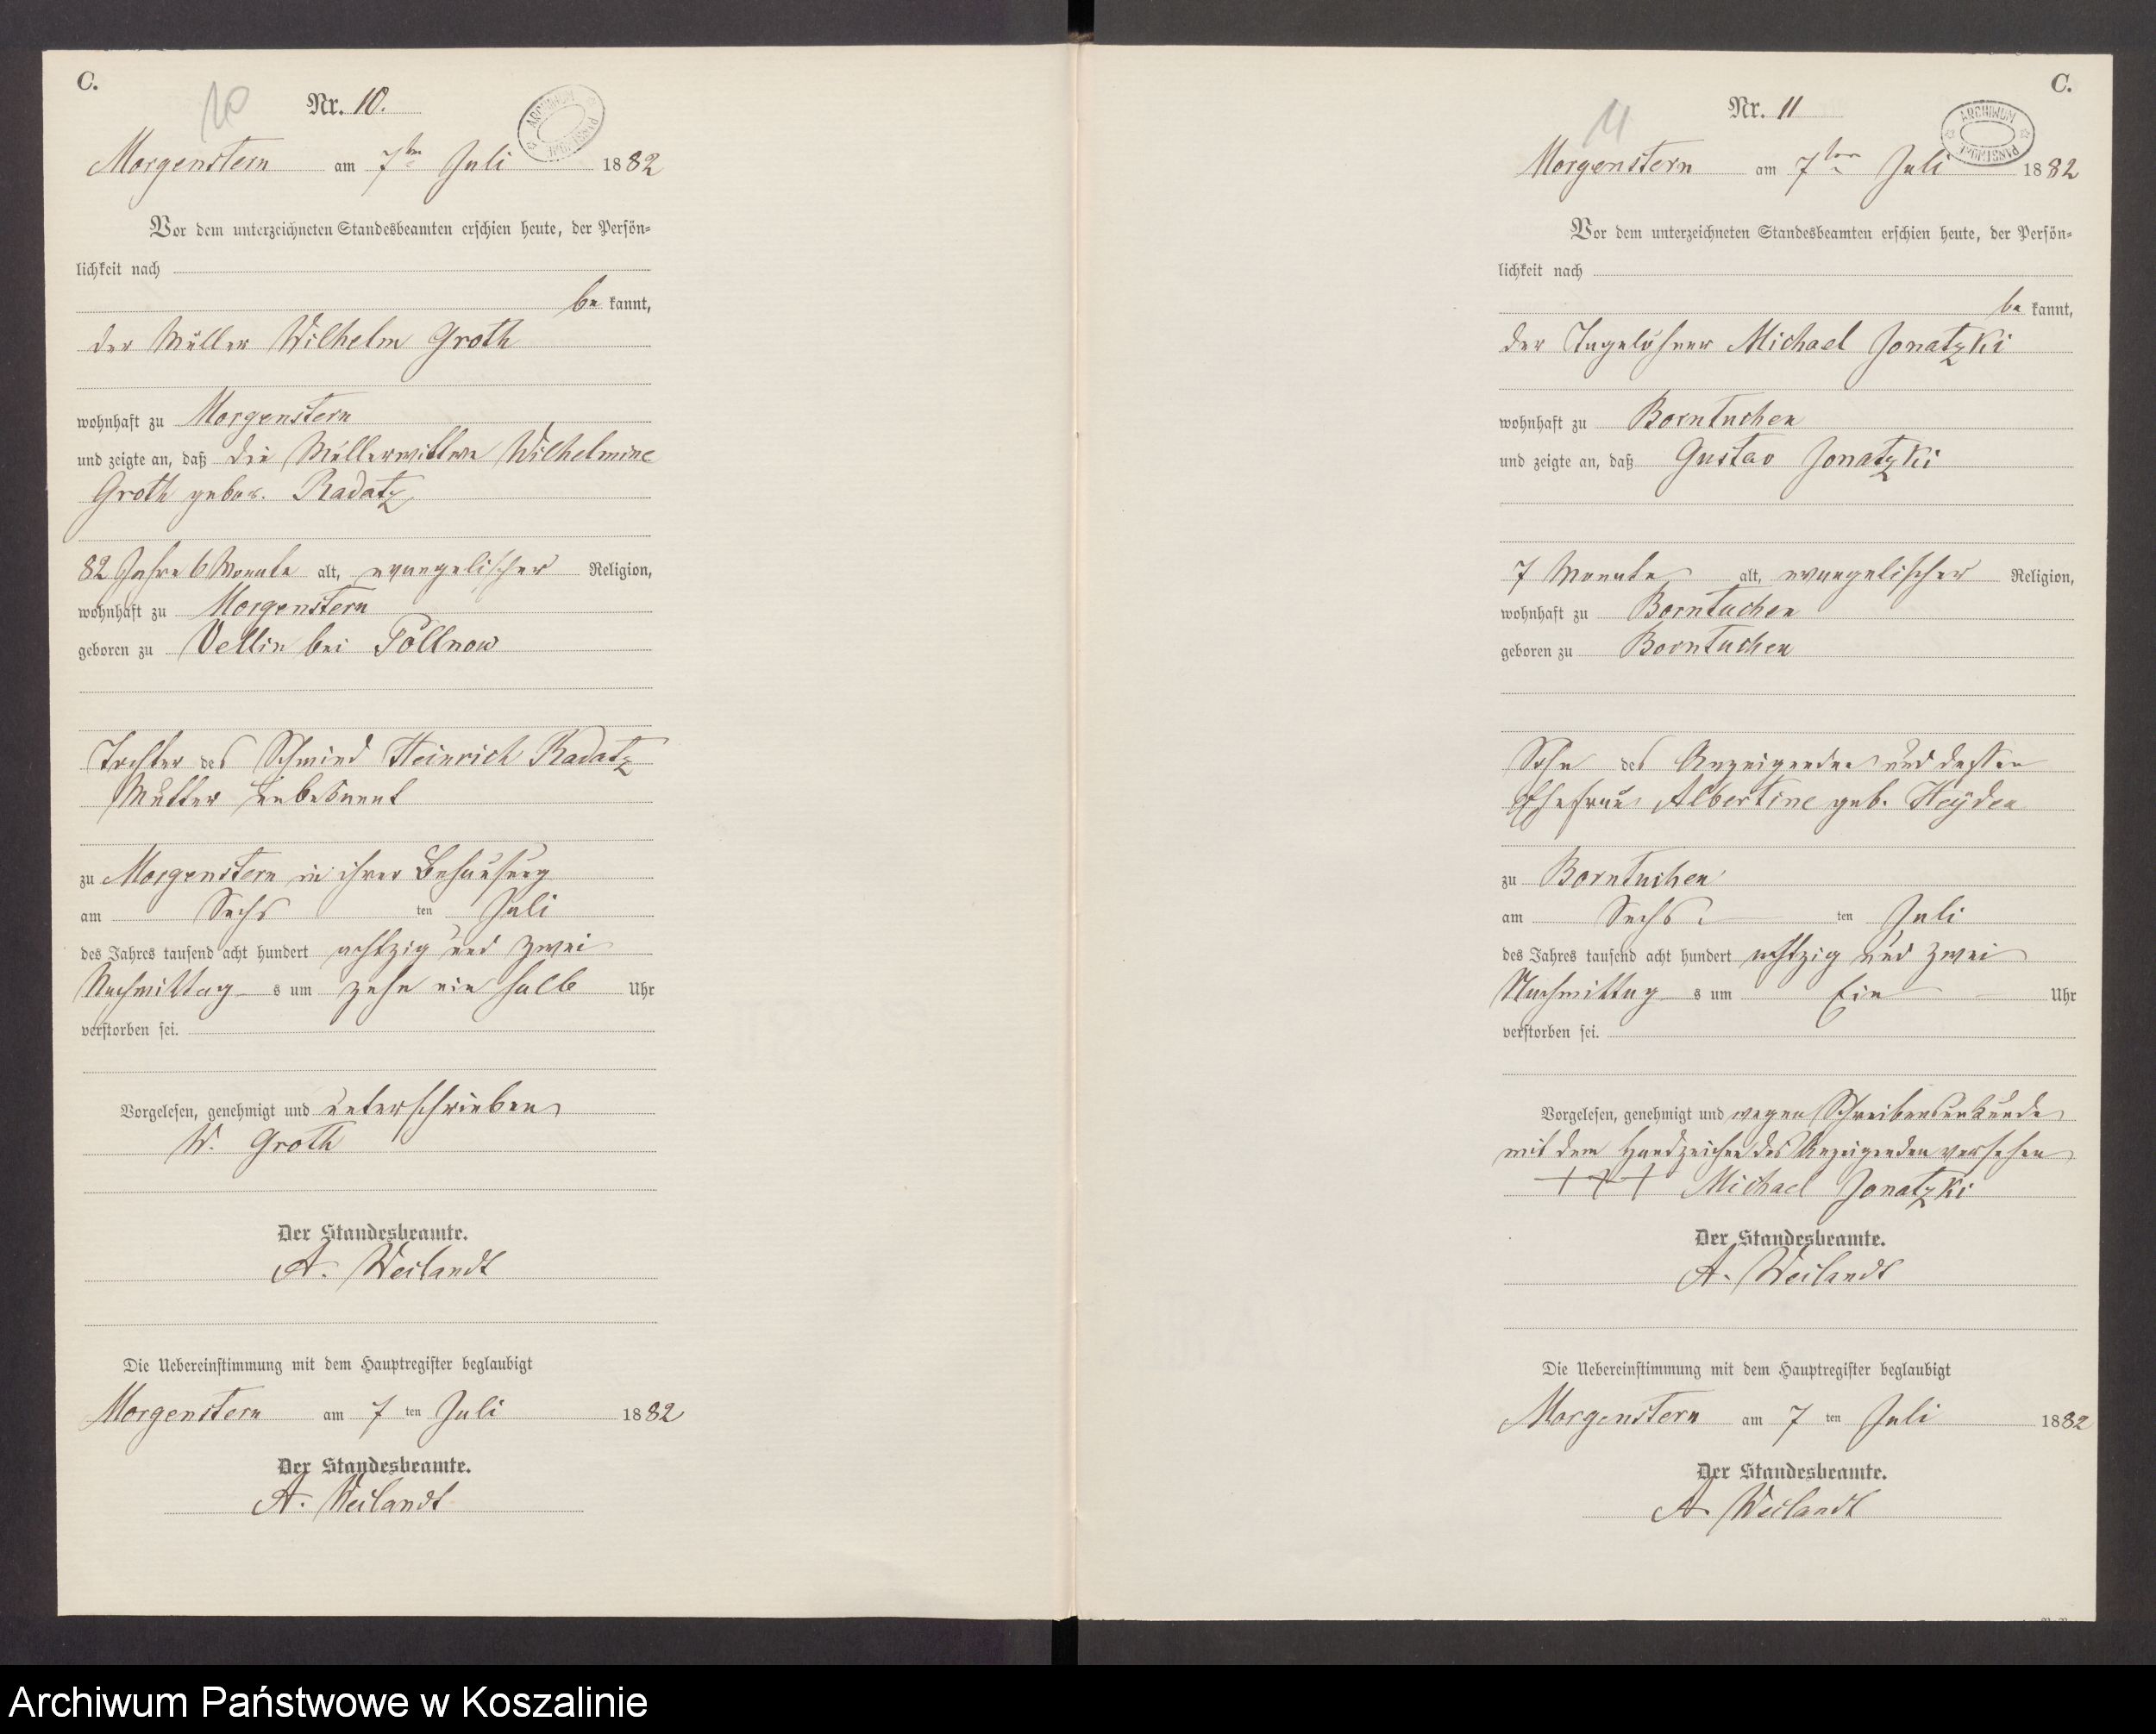 C.
10
Nr. 10.
ARCHIWUM PAŃSTWOWE
Morgenstern am 7ten Juli 1882
Vor dem unterzeichneten Standesbeamten erschien heute, der Persön-
lichkeit nach
be kannt,
der Müller Wilhelm Groth
wohnhaft zu Morgenstern
und zeigte an, daß die Müllerwittwe Wilhelmine
Groth gebor. Radatz
82 Jahre 6 Monate alt, evangelischer Religion,
wohnhaft zu Morgenstern
geboren zu Vellin bei Pollnow
Tochter des Schmied Heinrich Radatz
Mutter unbekannt
zu Morgenstern in ihrer Behausung
am Sechs ten Juli
des Jahres tausend acht hundert achtzig und zwei
Nachmittag s um zehn ein halb Uhr
verstorben sei.
Vorgelesen, genehmigt und unterschrieben
W. Groth
Der Standesbeamte.
A. Weilandt
Die Uebereinstimmung mit dem Hauptregister beglaubigt
Morgenstern am 7 ten Juli 1882
Der Standesbeamte.
A. Weilandt
C.
11
Nr. 11
ARCHIWUM PAŃSTWOWE
Morgenstern am 7ten Juli 1882
Vor dem unterzeichneten Standesbeamten erschien heute, der Persön-
lichkeit nach
be kannt,
der Tagelöhner Michael Jonatzki
wohnhaft zu Borntuchen
und zeigte an, daß Gustav Jonatzki
7 Monate alt, evangelischer Religion,
wohnhaft zu Borntuchen
geboren zu Borntuchen
Sohn des Anzeigenden und dessen
Ehefrau Albertine geb. Heyden
zu Borntuchen
am Sechs ten Juli
des Jahres tausend acht hundert achtzig und zwei
Nachmittag s um Ein Uhr
verstorben sei.
Vorgelesen, genehmigt und wegen Schreibensunkunde
mit dem Handzeichen des Anzeigenden versehen
+++ Michael Jonatzki
Der Standesbeamte.
A. Weilandt
Die Uebereinstimmung mit dem Hauptregister beglaubigt
Morgenstern am 7 ten Juli 1882
Der Standesbeamte.
A Weilandt
Archiwum Państwowe w Koszalinie